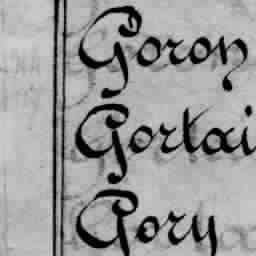 Goron
Gortai
Gory